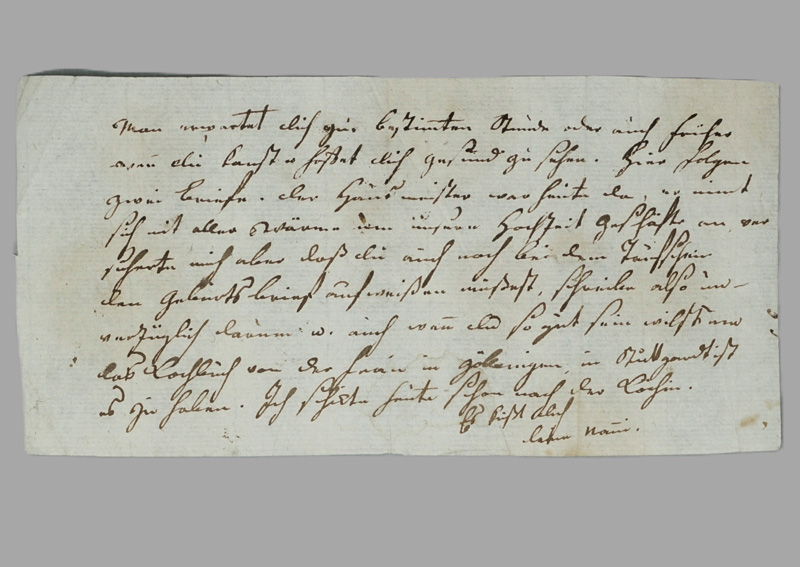 Man erwartet dich zur bestimten Stunde oder auch früher
wenn du kanst u hoffet dich gesund zu sehen. Hier folgen
zwei briefe. der Hausmeister war heute da, er nimt
sich mit aller Wärme um unsere Hochzeit geschäfte an, ver
sicherte mich aber daß du auch noch bei dem Taufschein
den Geburtsbrief aufweißen müßest, schreibe also un-
verzüglich darum u. auch wenn du so gut sein wilst um
das Kochbuch von der Frau in, in Stuttgardt ist
es zu haben. Ich schickte heute schon nach der Köchin.
Es küßt dich
deine Nanni.